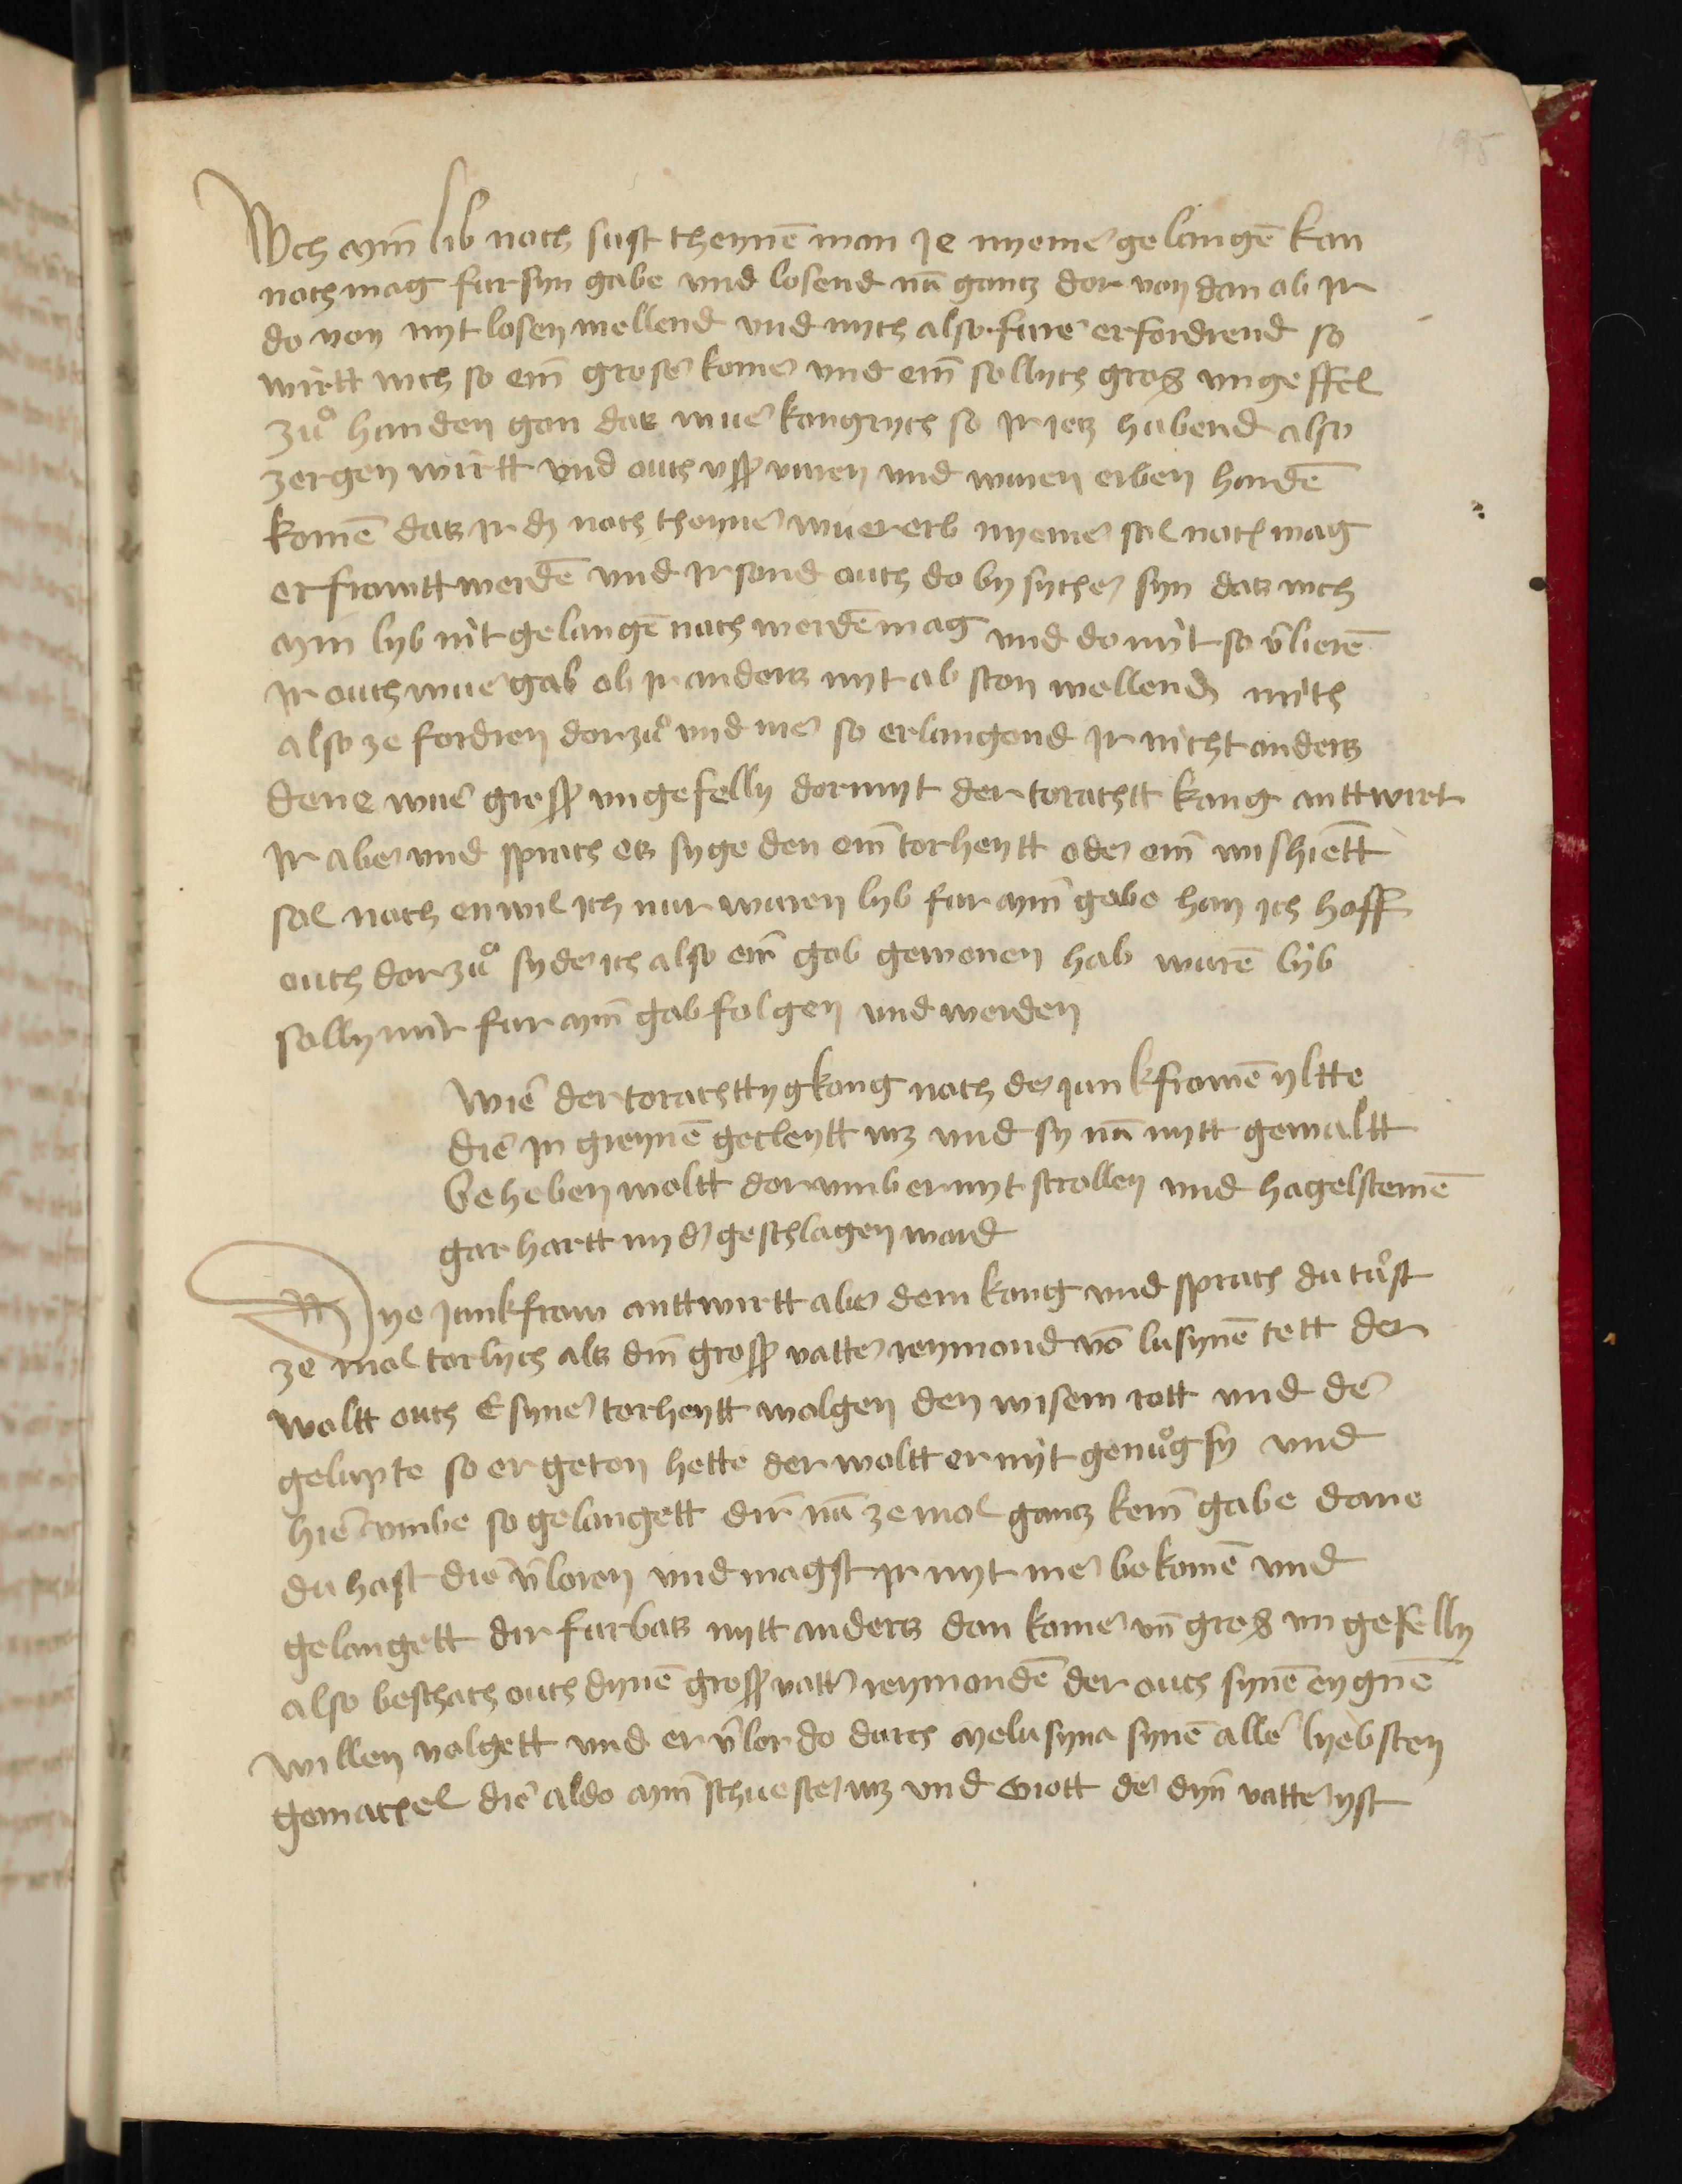 195
Wch myn̄ lib noch sust theynē man je nyemer gelangē kan
noch mag fur syn gabe vnd losend nū gantz dor von dan ob jr
do von nyt losen wellend vnd mych also furer erfordrend so
wirtt wch so ein̄ groser komer vnd ein̄ sollych grosz vngeffel
zuͦ handen gon das wuer kongrych so jr jetz habend also
zergen wirtt vnd ouch vsß vwren vnd wuren erben handē
komē das jr dz noch theyner wuer erb nyemer sol noch mag
erfrowtt werdē vnd jr sond ouch do by sycher syn das wch
myn lyb nit gelangē noch werdē mag vnd do myt so v̄lierē
jr ouch wuer gab ob jr anders nyt ab ston wellend mych
also ze fordren dorzuͦ vnd me so erlangond jr nicht anders
dene wuer grosß vngefelly dormyt der torachtt kong anttwirt
jr aber vnd sprach es syge den ein̄ torheytt oder ein̄ wishiett
sol noch enwil ich nur wuren lyb fur myn̄ gabe han jch hoff
ouch dorzuͦ syder ich also ein̄ gob gewonen hab wurē lyb
solly mir fur myn̄ gob folgen vnd werden
Wie der torachttyg kong noch der junkfrowē yltte
die jn greynē gecleytt wz vnd sy nū mytt gewaltt
beheben woltt dor vmb er myt strollen vnd hagelsteinē
gar hartt nyder geschlagen ward
Dye junkfrow anttwirtt aber dem kong vnd sprach du tuͦst
ze mol torlych als din̄ grosß vatter reymond vō lusynē tett der
woltt ouch e syner torheytt volgen den wisem rott vnd der
gelupte so er geton hette der woltt er nyt genuͦg sy vnd
hie vmbe so gelangett dir nū ze mol gantz kein̄ gabe dane
du hast die v̄loren vnd magst jr nyt me bekomē vnd
gelangett dir furbas nytt anders dan komer vn̄ grosz vngefelly
also beschach ouch dynē grosß vatter reymondē der ouch synē eygnē
willen volgett vnd er v̄lor do durch melusyna synē aller lyebsten
gemachel die aldo myn̄ schuester wz vnd Giott der dyn̄ vatter yst